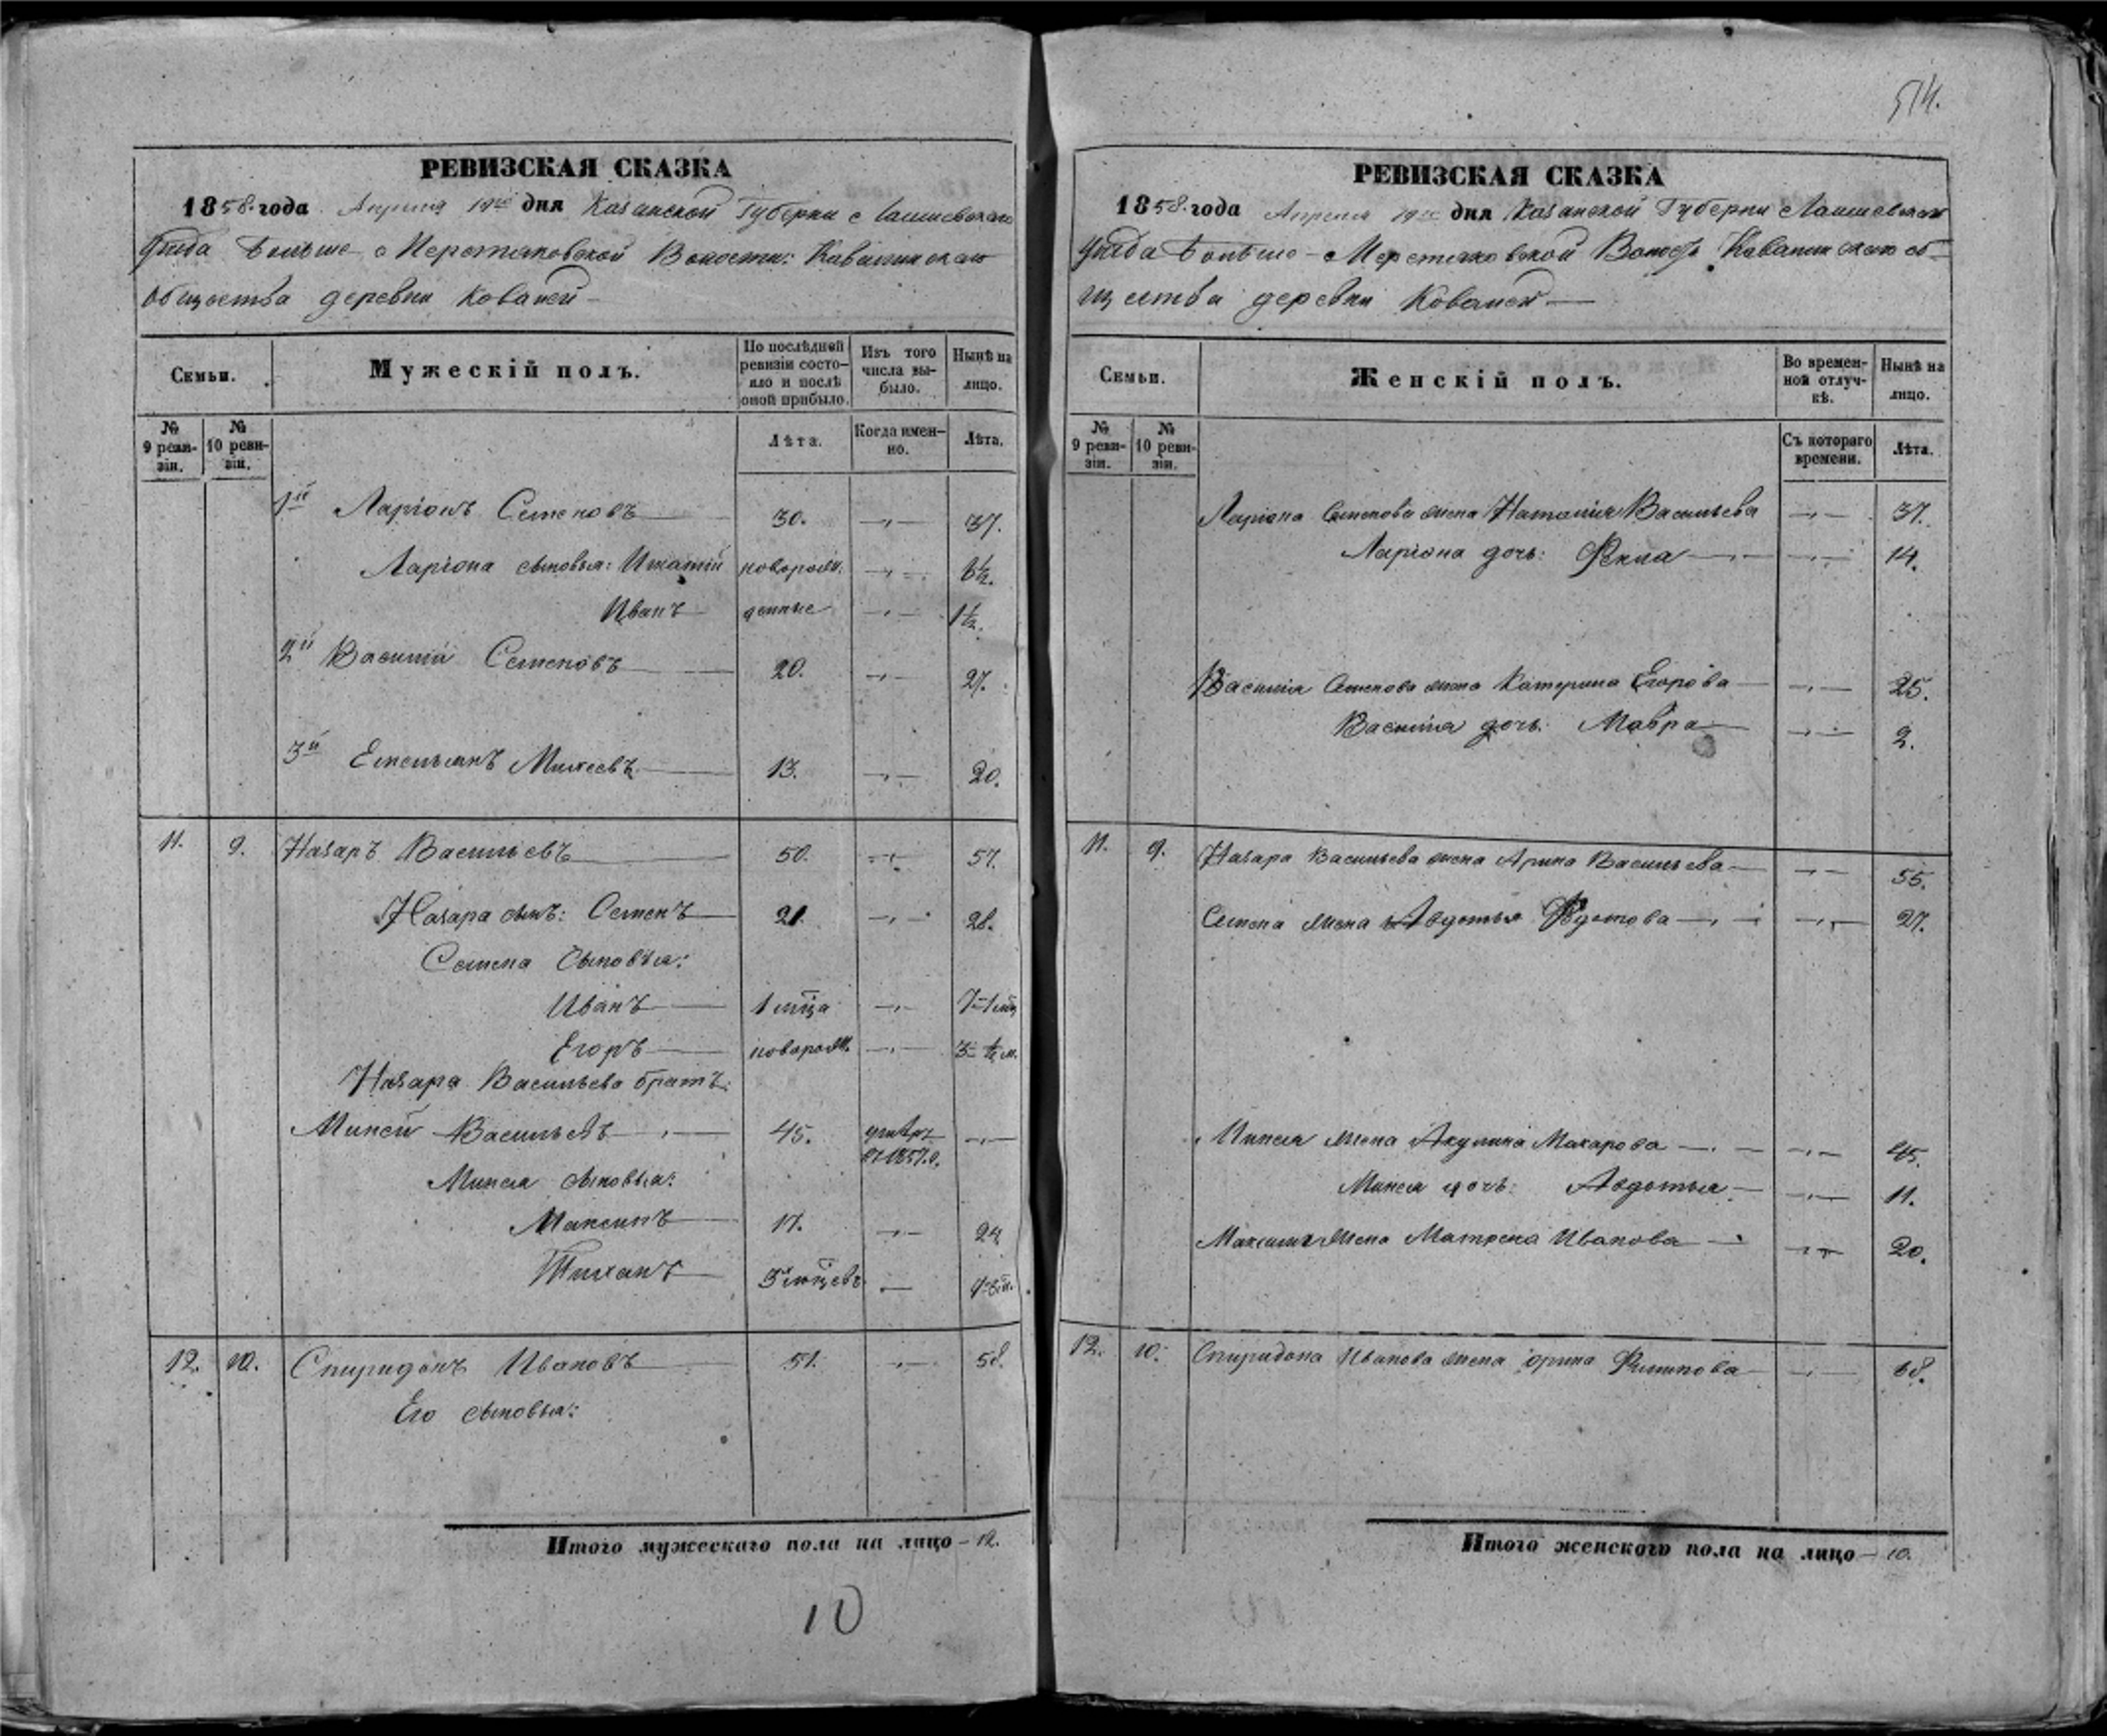 РЕВИЗСКАЯ СКАЗКА
1858. года Апреля 19го дня Казанской Губерніи Лаишевскаго
Уѣзда Больше - Меретяковской Волости: Кавалинскаго
Общества деревни Ковалей
Семьи.
Мужескій полъ.
По послѣдней ревизіи состояло и послѣ оной прибыло.
Изъ того числа выбыло.
Нынѣ на лицо.
№ 9 ревизіи.
№ 10 ревизіи.
Лѣта.
Когда именно.
Лѣта.
1й Ларіонъ Семеновъ 30. 37.
Ларіона сыновья: Игнатій новорож- 6½.
Иванъ денные 1½.
2й Василій Семеновъ 20. 27.
3й Емельянъ Михеевъ 13. 20.
11. 9. Назаръ Васильевъ 50. 57.
Назара сынъ: Семенъ 21. 28.
Семена сыновья:
Иванъ 1 мѣца 7-1 мѣц
Егоръ новорож. 3-½ м.
Назара Васильева братъ:
Миней Васильевъ 45. умеръ
въ 1857. г.
Минея сыновья:
Максимъ 17. 24
Тиханъ 3 мѣцевъ 7-3 м.
12. 10. Спиридонъ Ивановъ 51. 58.
Его сыновья:
Итого мужескаго пола на лицо - 12.
10
514.
РЕВИЗСКАЯ СКАЗКА
1858. года Апреля 19го дня Казанской Губерніи Лаишевскаго
Уѣзда Больше - Меретяковской Волости Кавалинскаго об-
щества деревни Ковалей
Семьи.
Женскій полъ.
Во временной отлучкѣ.
Нынѣ на лицо.
№ 9 ревизіи.
№ 10 ревизіи.
Съ котораго времени.
Лѣта.
Ларіона Семенова жена Наталия Васильева 37.
Ларіона дочь: Фекла 14.
Василія Семенова жена Катерина Егорова 25.
Василія дочь: Мавра 2.
11. 9. Назара Васильева жена Арина Васильева 55.
Семена жена Авдотья Федотова 27.
Минея жена Акулина Макарова 45.
Минея дочь: Авдотья 11.
Максима жена Матрена Иванова 20.
12. 10. Спиридона Иванова жена Орина Филипова 68.
Итого женского пола на лицо - 10.